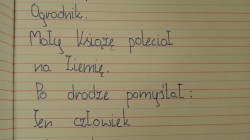 Ogrodnik.
Mały Książę poleciał
na Ziemię.
Po drodze pomyślał:
Ten człowiek